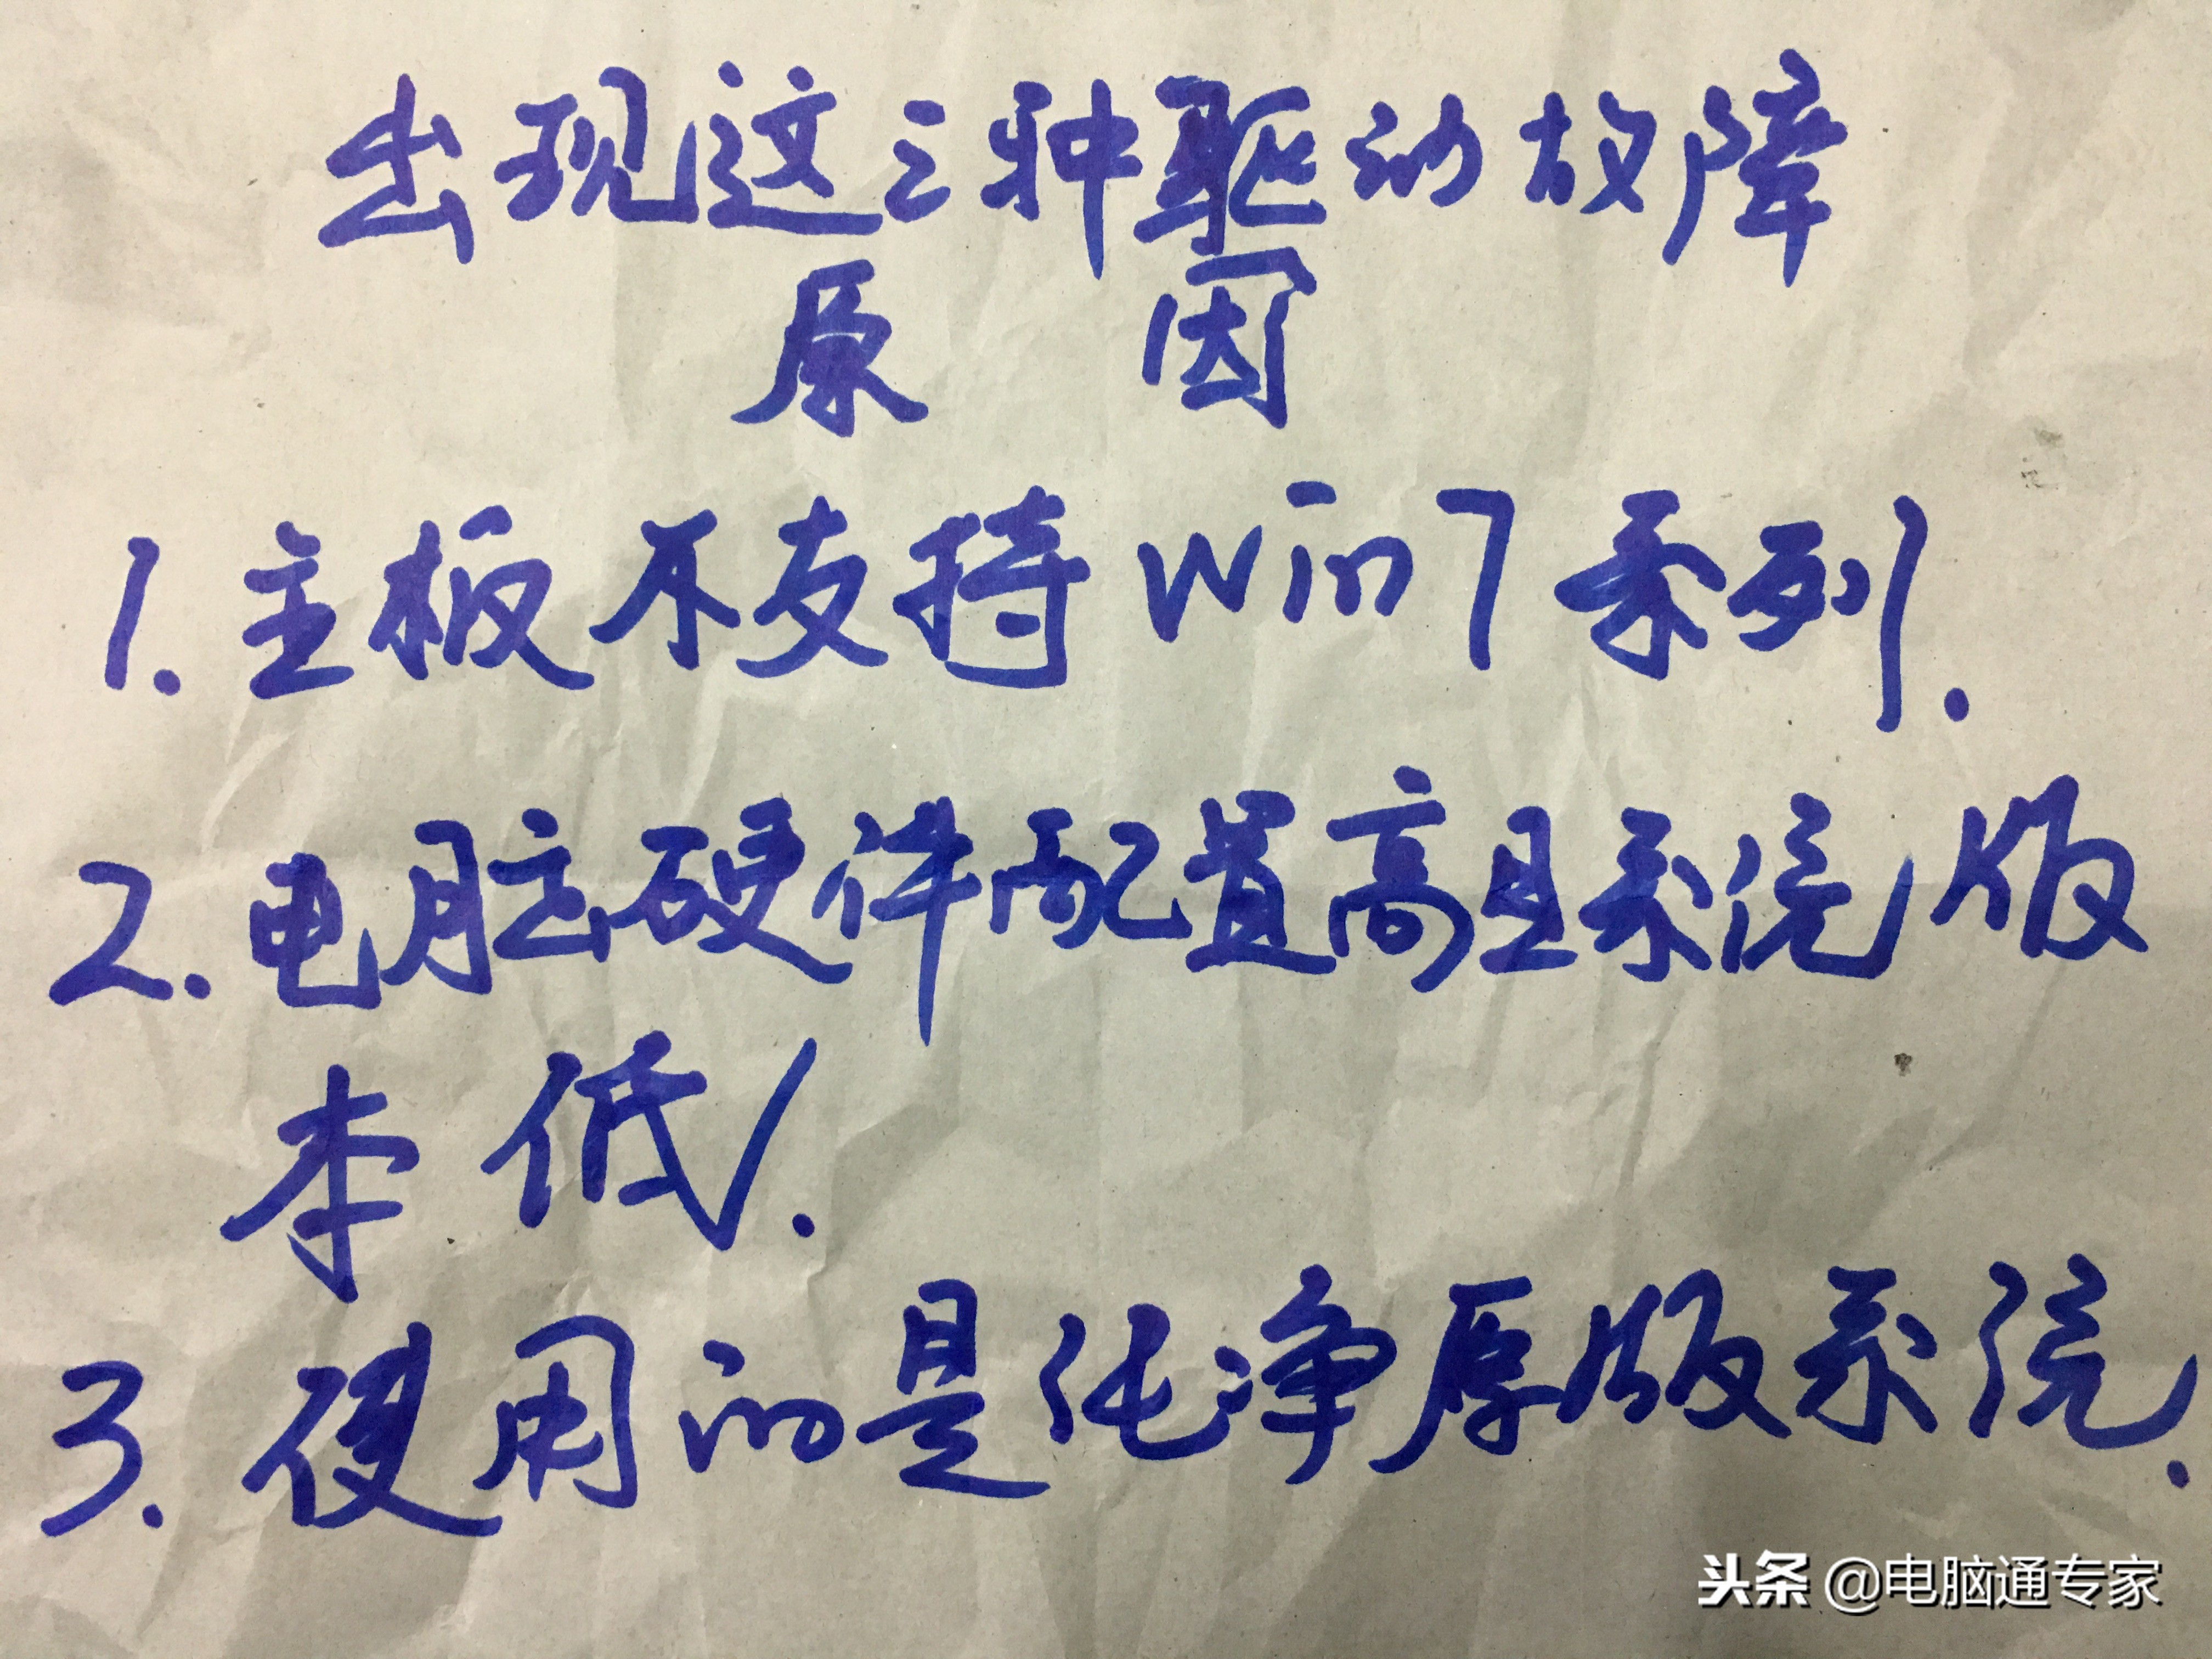 出现这三种驱动故障
原因
1. 主板不支持win7系列.
2. 电脑硬件配置高且系统版
本低.
3. 使用的是纯净原版系统.
头条 @电脑通专家